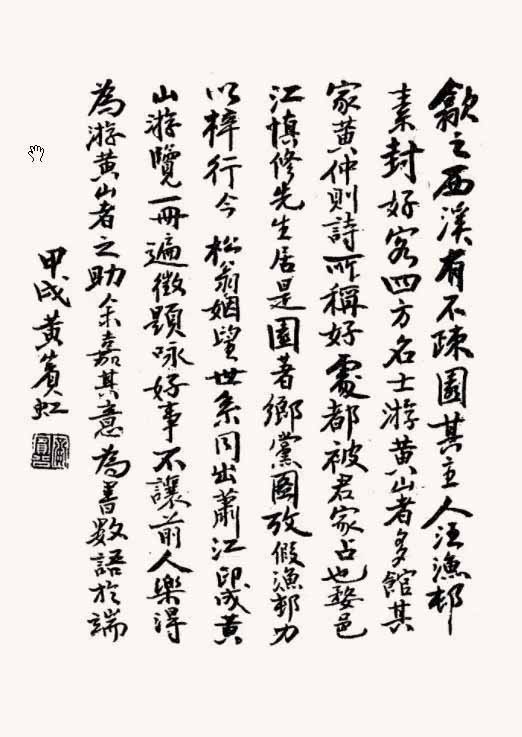 歙之西溪有不疎園其主人汪漁邨
素封好客四方名士游黃山者多館其
家黃仲則詩所稱好處都被君家占也婺邑
江慎修先生居是園著鄉黨圖攷假漁邨力
以梓行今松翁姻望世系同出蕭江印成黃
山游覽一冊遍徵題咏好事不讓前人樂得
為游黃山者之助余嘉其意為書數語於端
甲戌黃賓虹